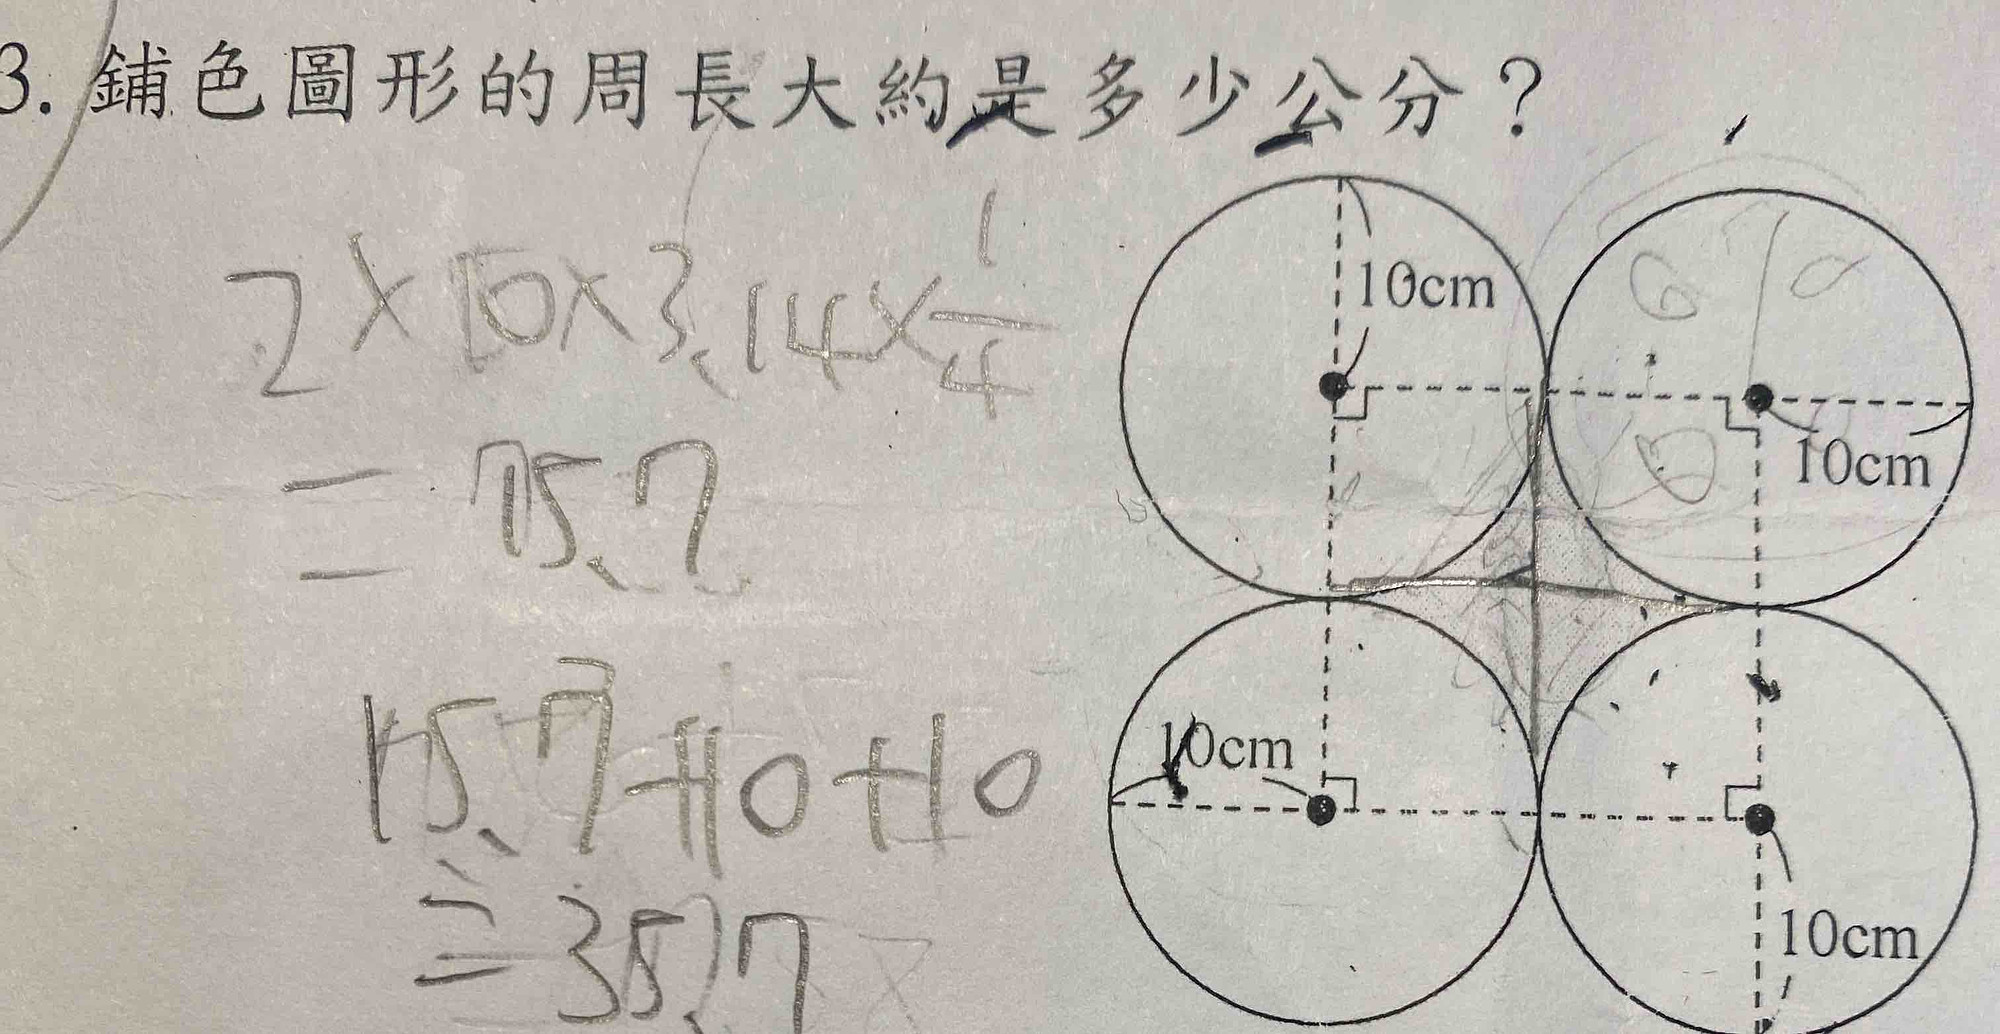 3. 鋪色圖形的周長大約是多少公分？
2×10×3.14×1/4
= 15.7
15.7+10+10
= 35.7
10cm
10cm
10cm
10cm